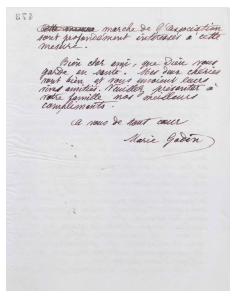 marche de l'Association
sont profondément intéressés à cette
mesure.
Bien cher ami, que Dieu vous
garde en santé. Mes deux chéries
vont bien et vous envoient leurs
vives amitiés. Veuillez présenter à
votre famille nos meilleurs
compliments.
À vous de tout cœur
Marie Godin